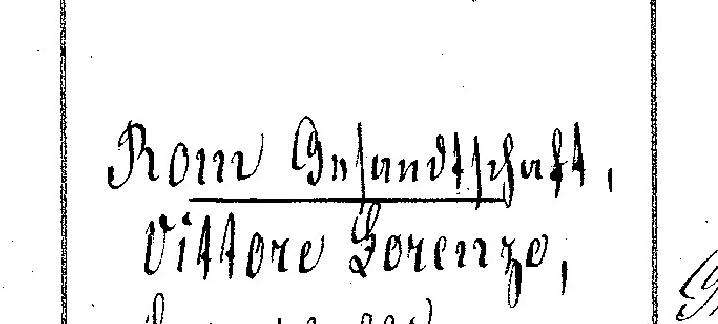 Rom Gesandtschaft,
Vittore Lorenzo,